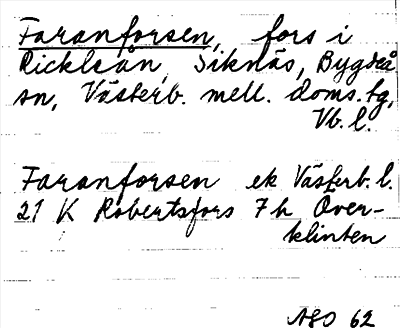 Faranforsen, fors i
Rickleån, Siknäs, Bygdeå
sn, Västerb. mell. doms.tg,
Vb. l.
Faranforsen ek Västerb. l.
21 K Robertsfors 7 h Över-
klinten
ASO 62